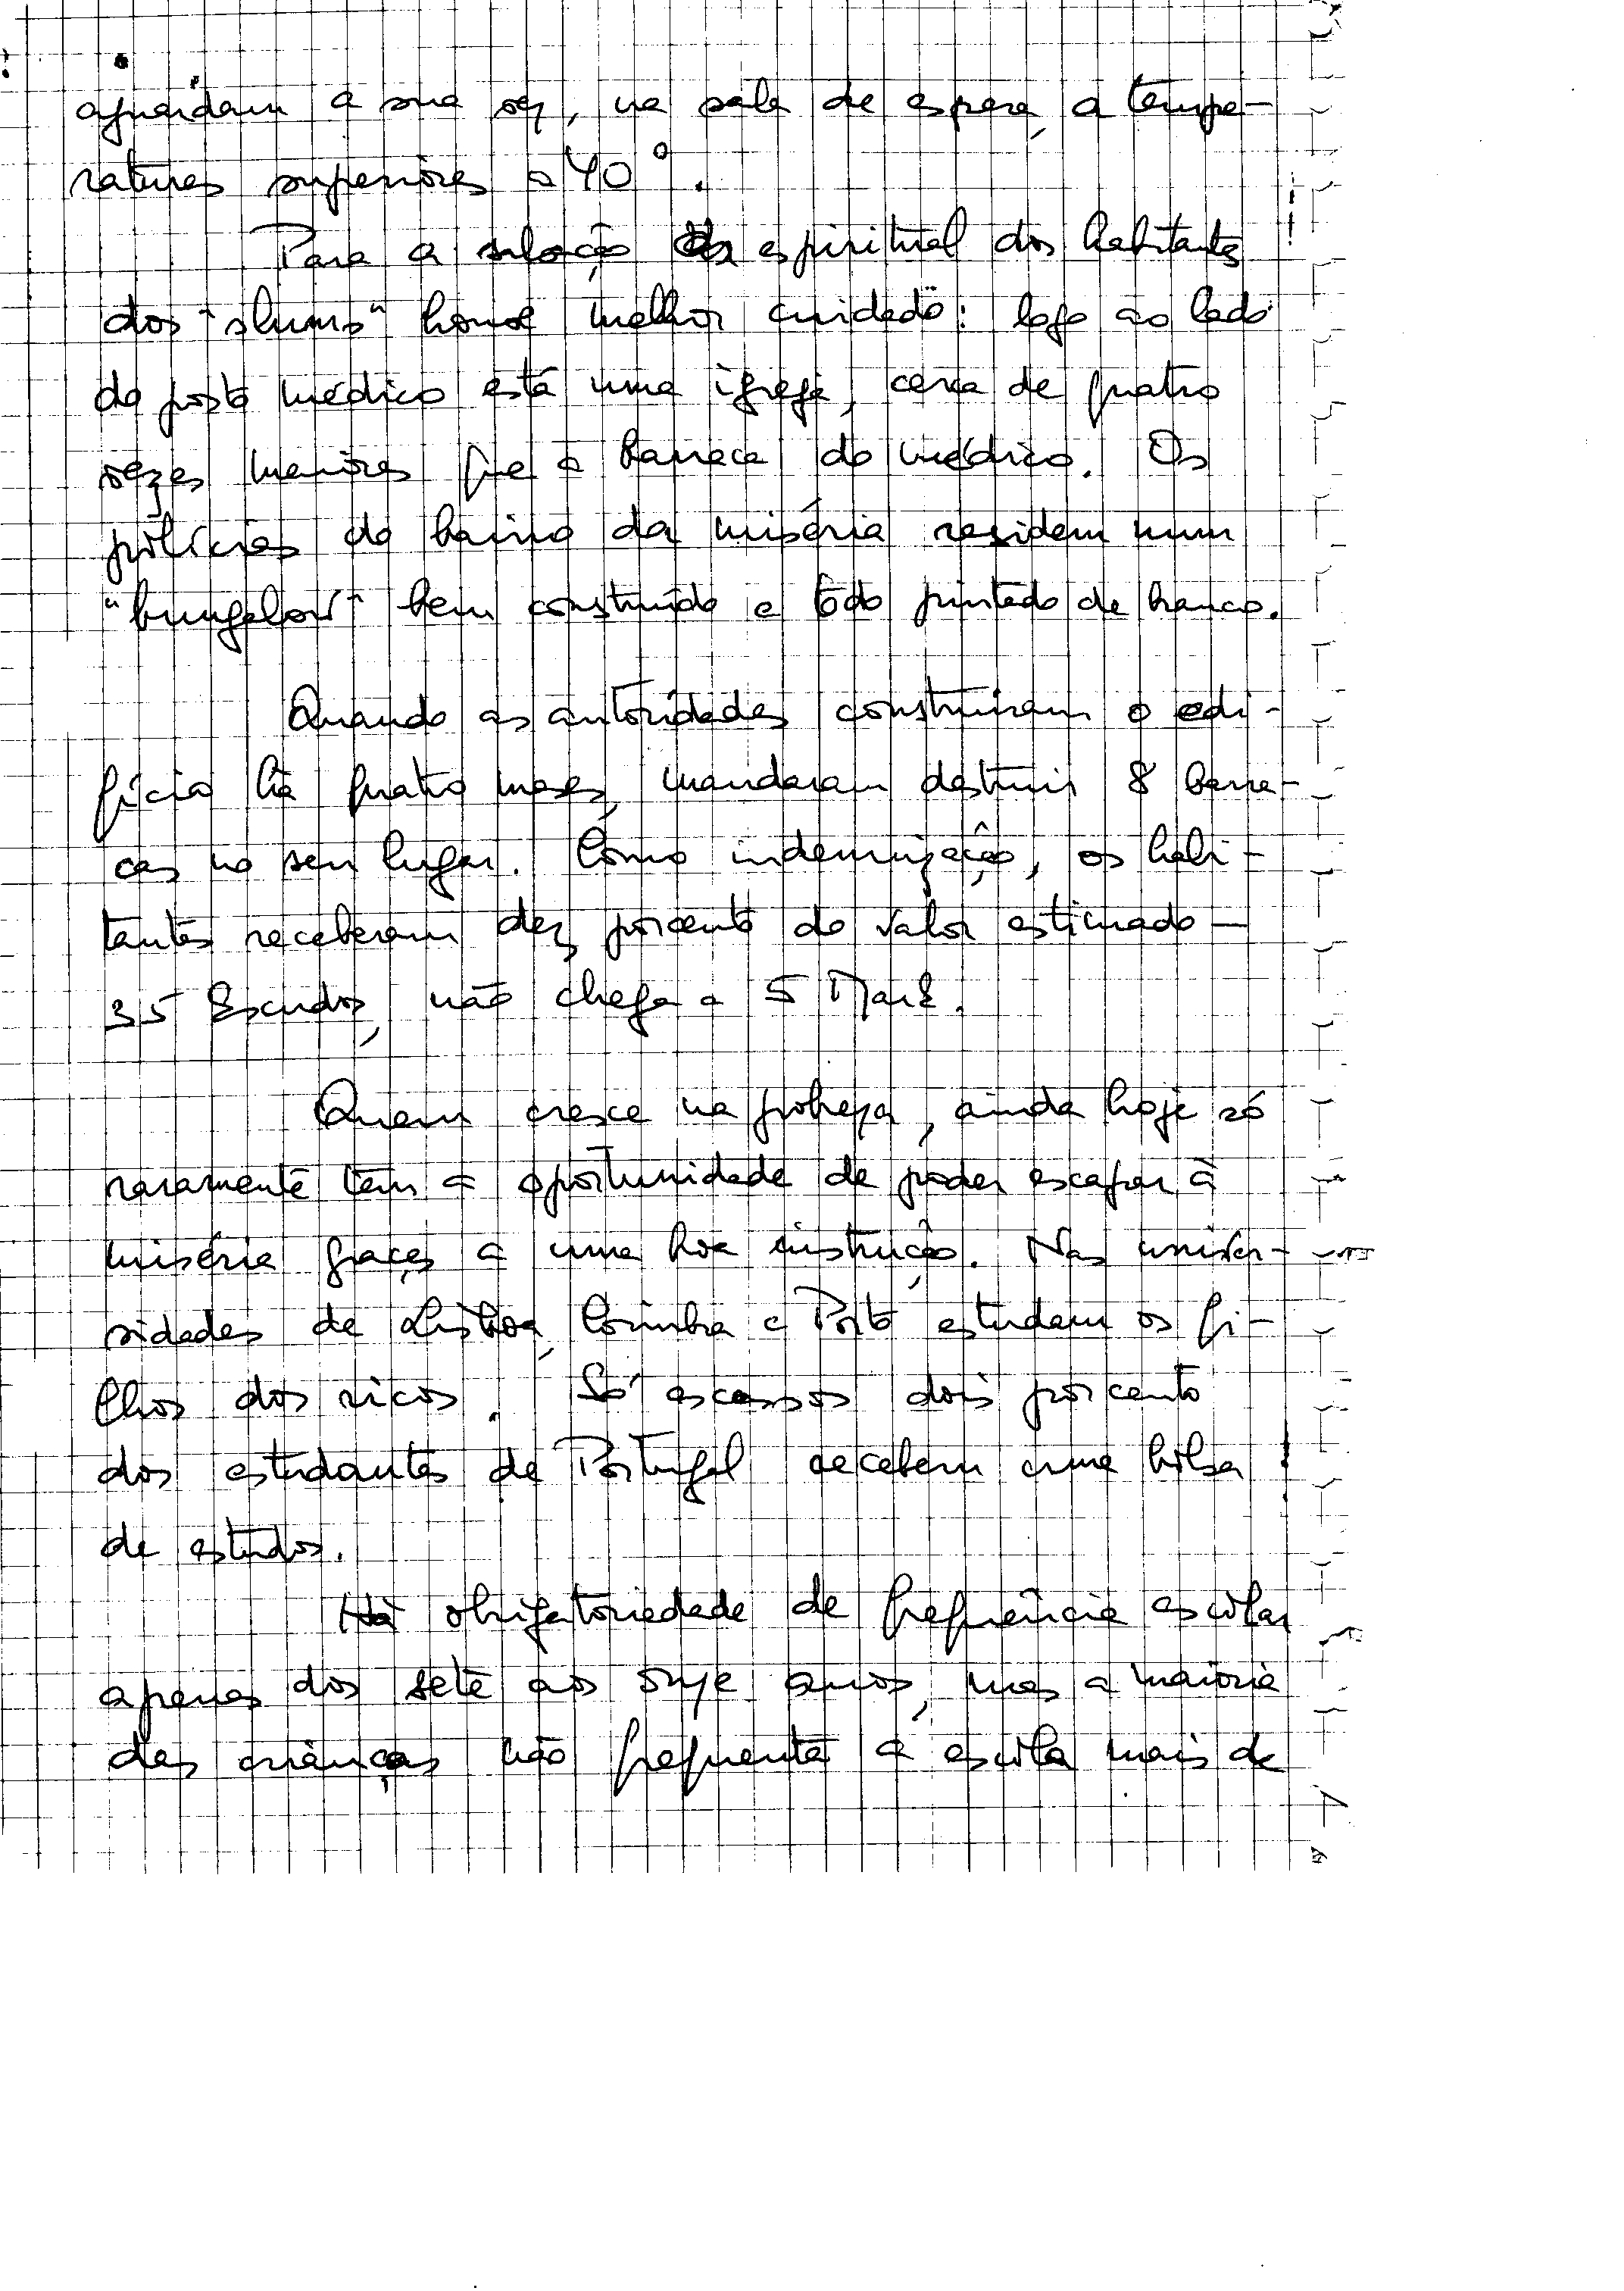 aguardam a sua vez, na sala de espera, a tempe-
raturas superiores a 40°.
Para a salvação espiritual dos habitantes
dos "slums" houve melhor cuidado: logo ao lado
do posto médico está uma igreja, cerca de quatro
vezes maiores que a barraca do médico. Os
polícias do bairro da miséria residem num
"bungalow" bem construído e todo pintado de branco.
Quando as autoridades construiram o edi-
fício há quatro meses, mandaram destruir 8 barra-
cas no seu lugar. Como indemnização, os habi-
tantes receberam dez porcento do valor estimado —
35 Escudos, não chega a 5 Mark.
Quem cresce na pobreza, ainda hoje só
raramente tem a oportunidade de poder escapar à
miséria graças a uma boa instrução. Nas univer-
sidades de Lisboa, Coimbra e Porto estudam os fi-
lhos dos ricos. Só escassos dois porcento
dos estudantes de Portugal recebem uma bolsa
de estudos.
Há obrigatoriedade de frequência escolar
apenas dos sete aos onze anos, mas a maioria
das crianças não frequenta a escola mais de